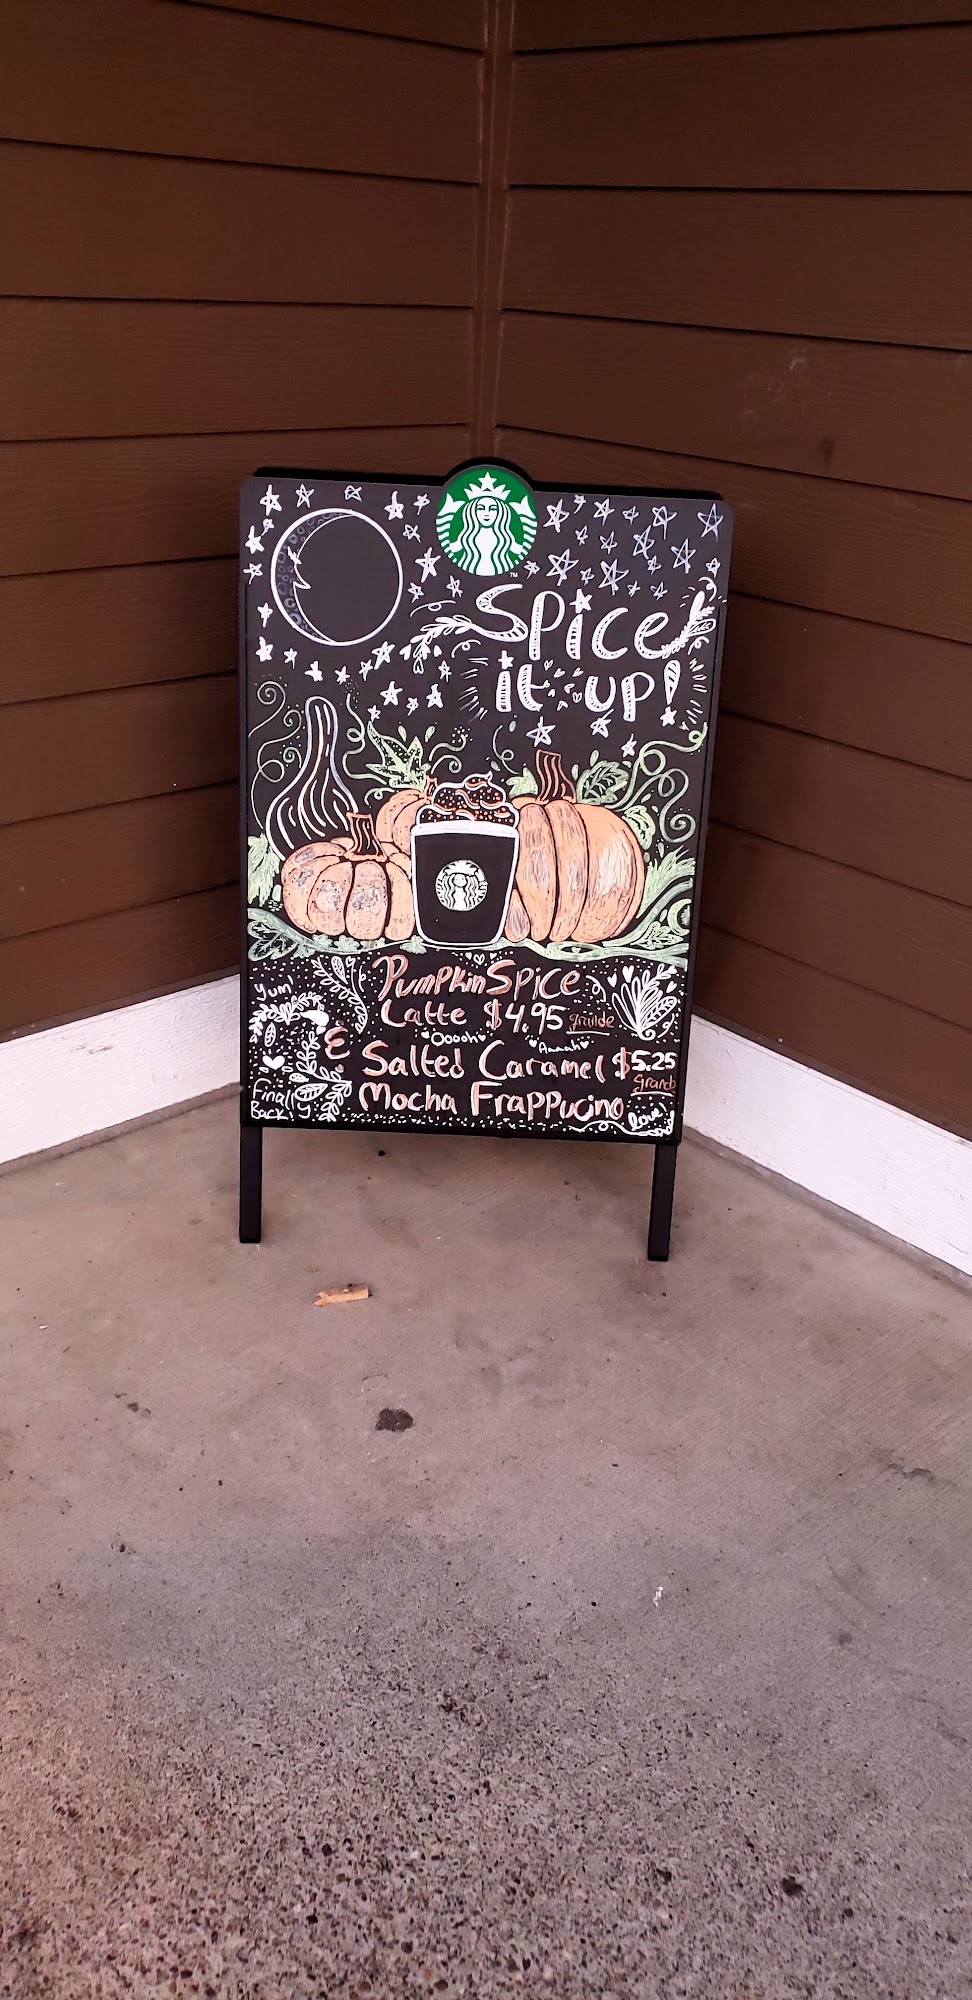 ™
Spice
it up!
Yum!
Pumpkin Spice
Latte $4.95 grande
Ooooh Aaaah
& Salted Caramel $5.25
grande
Mocha Frappucino
Finally
Back!
love!